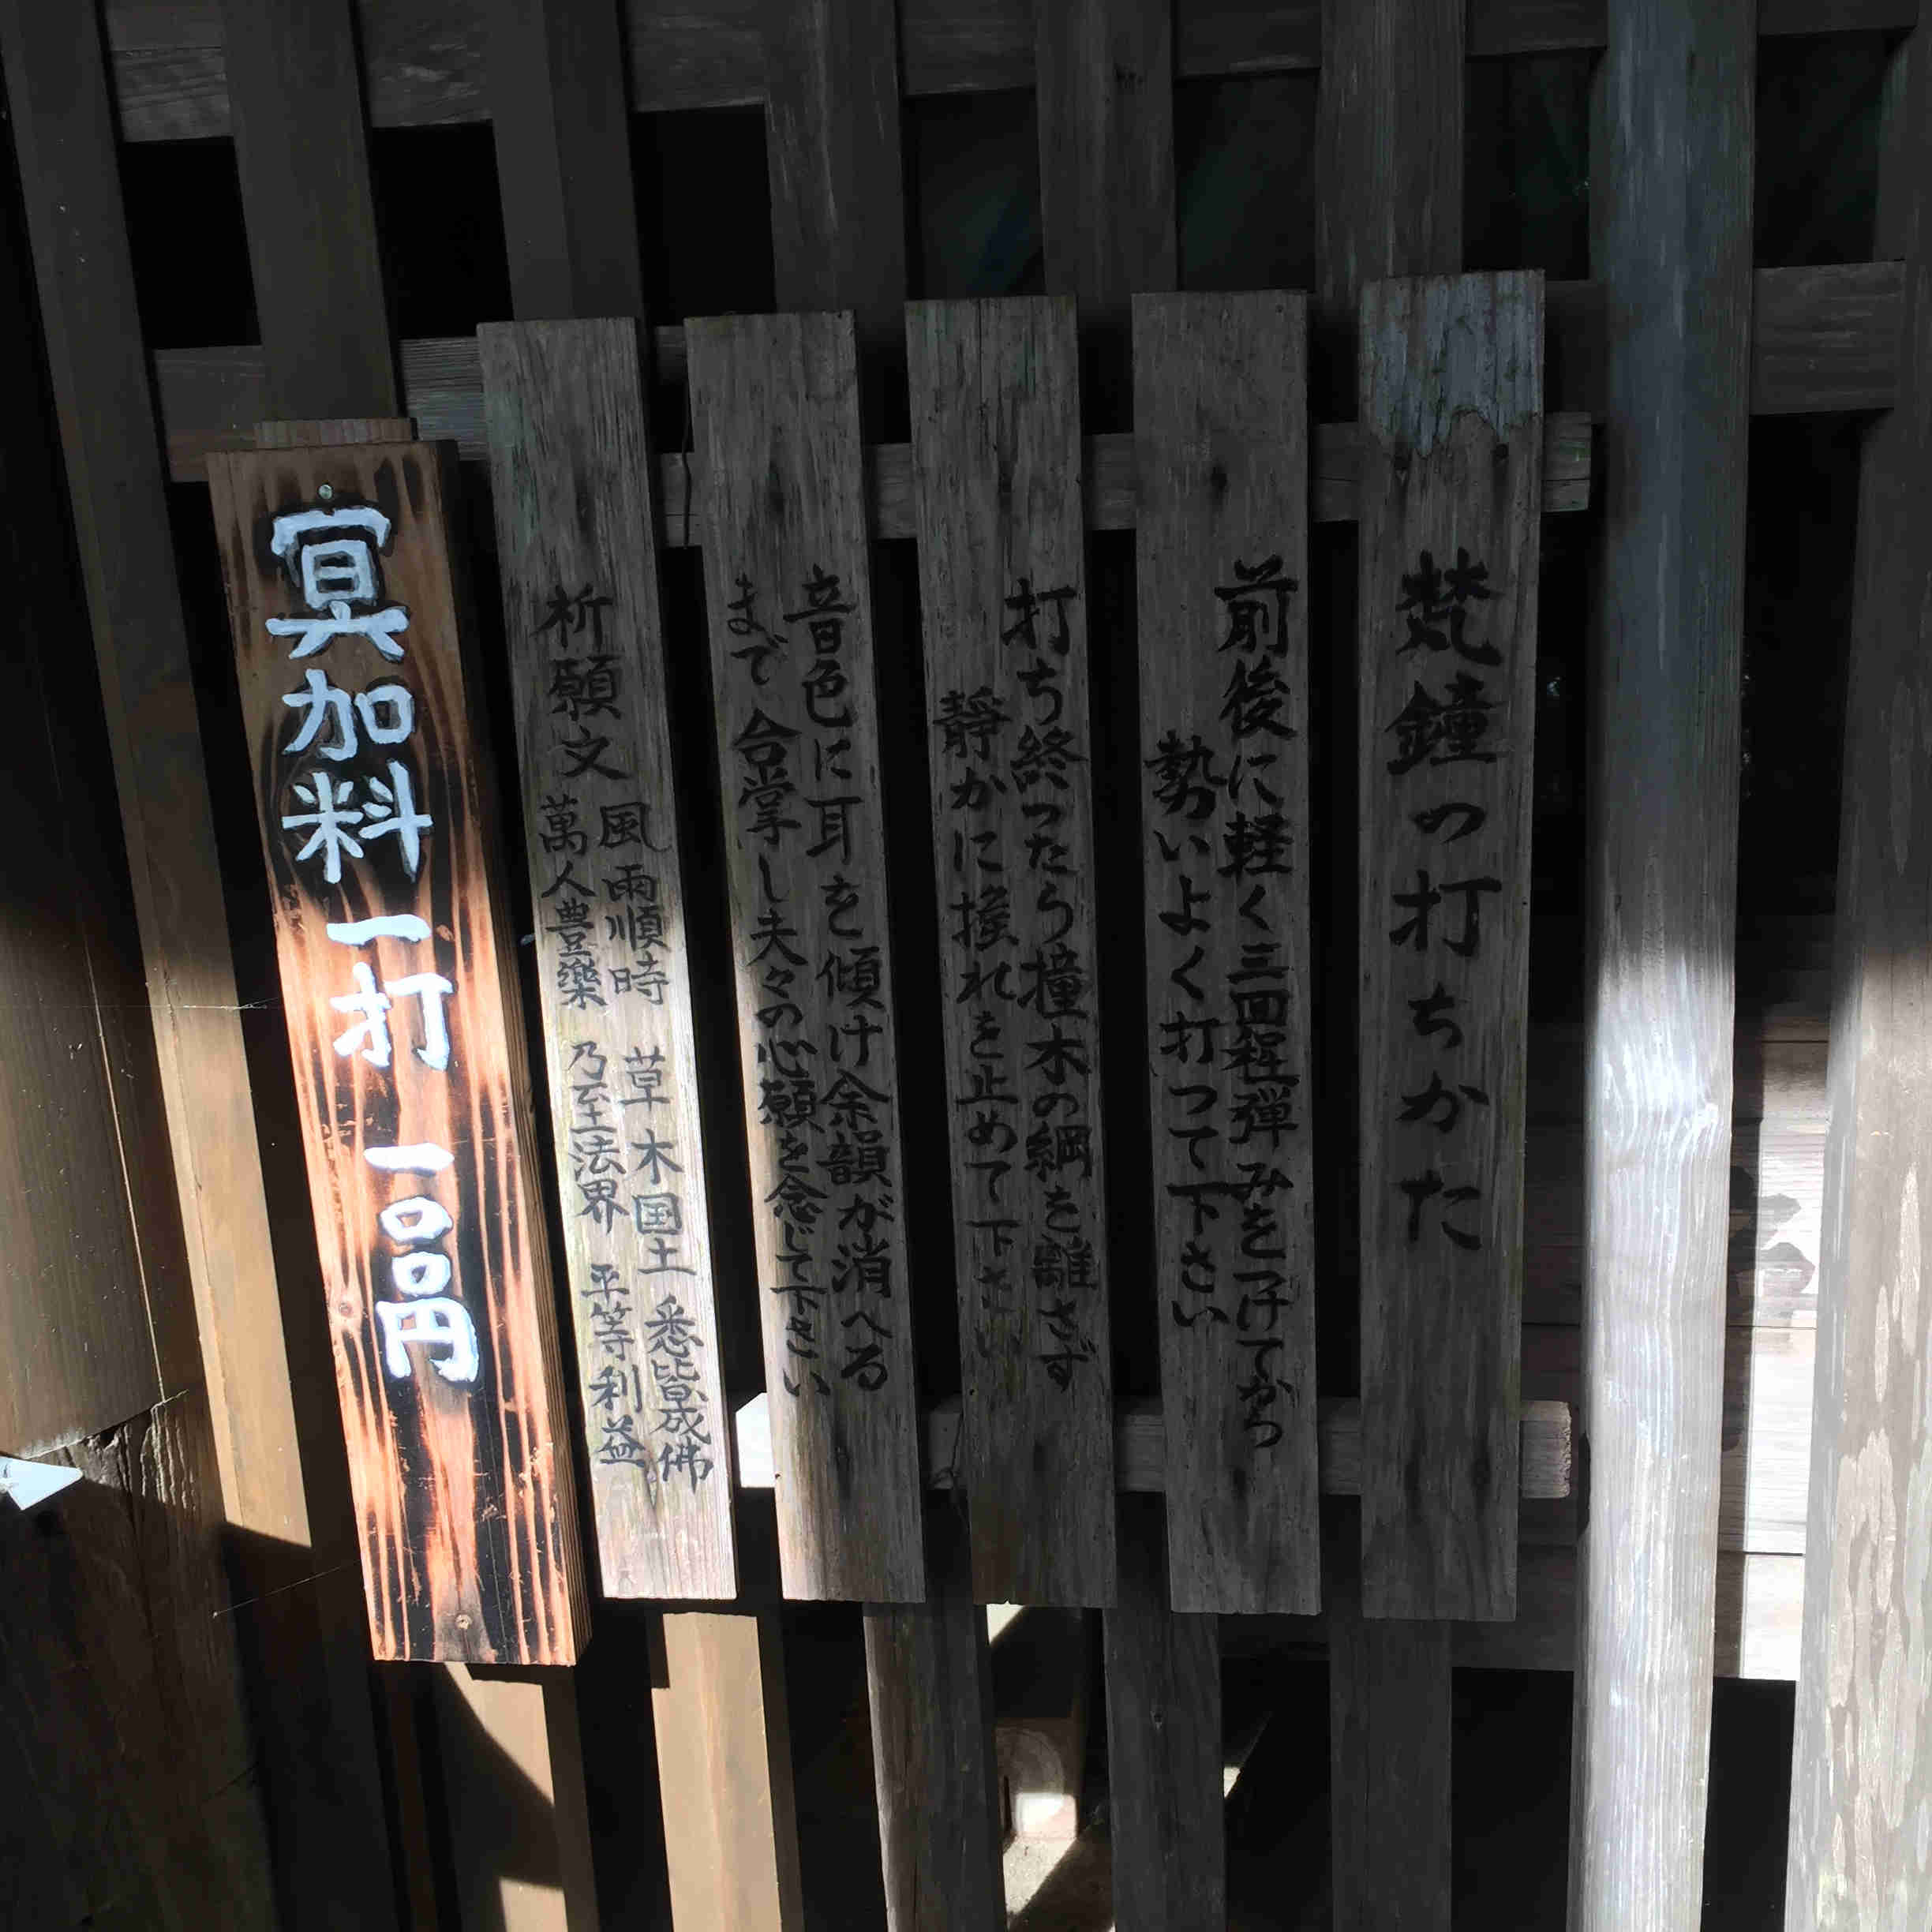 梵鐘の打ちかた
前後に軽く三回程弾みをつけてから
勢いよく打つて下さい
打ち終つたら撞木の綱を離さず
静かに揺れを止めて下さい
音色に耳を傾け余韻が消へる
まで合掌し夫々の心願を念じて下さい
祈願文
風雨順時 草木国土 悉皆成佛
萬人豊樂 乃至法界 平等利益
冥加料 一打 一〇〇円